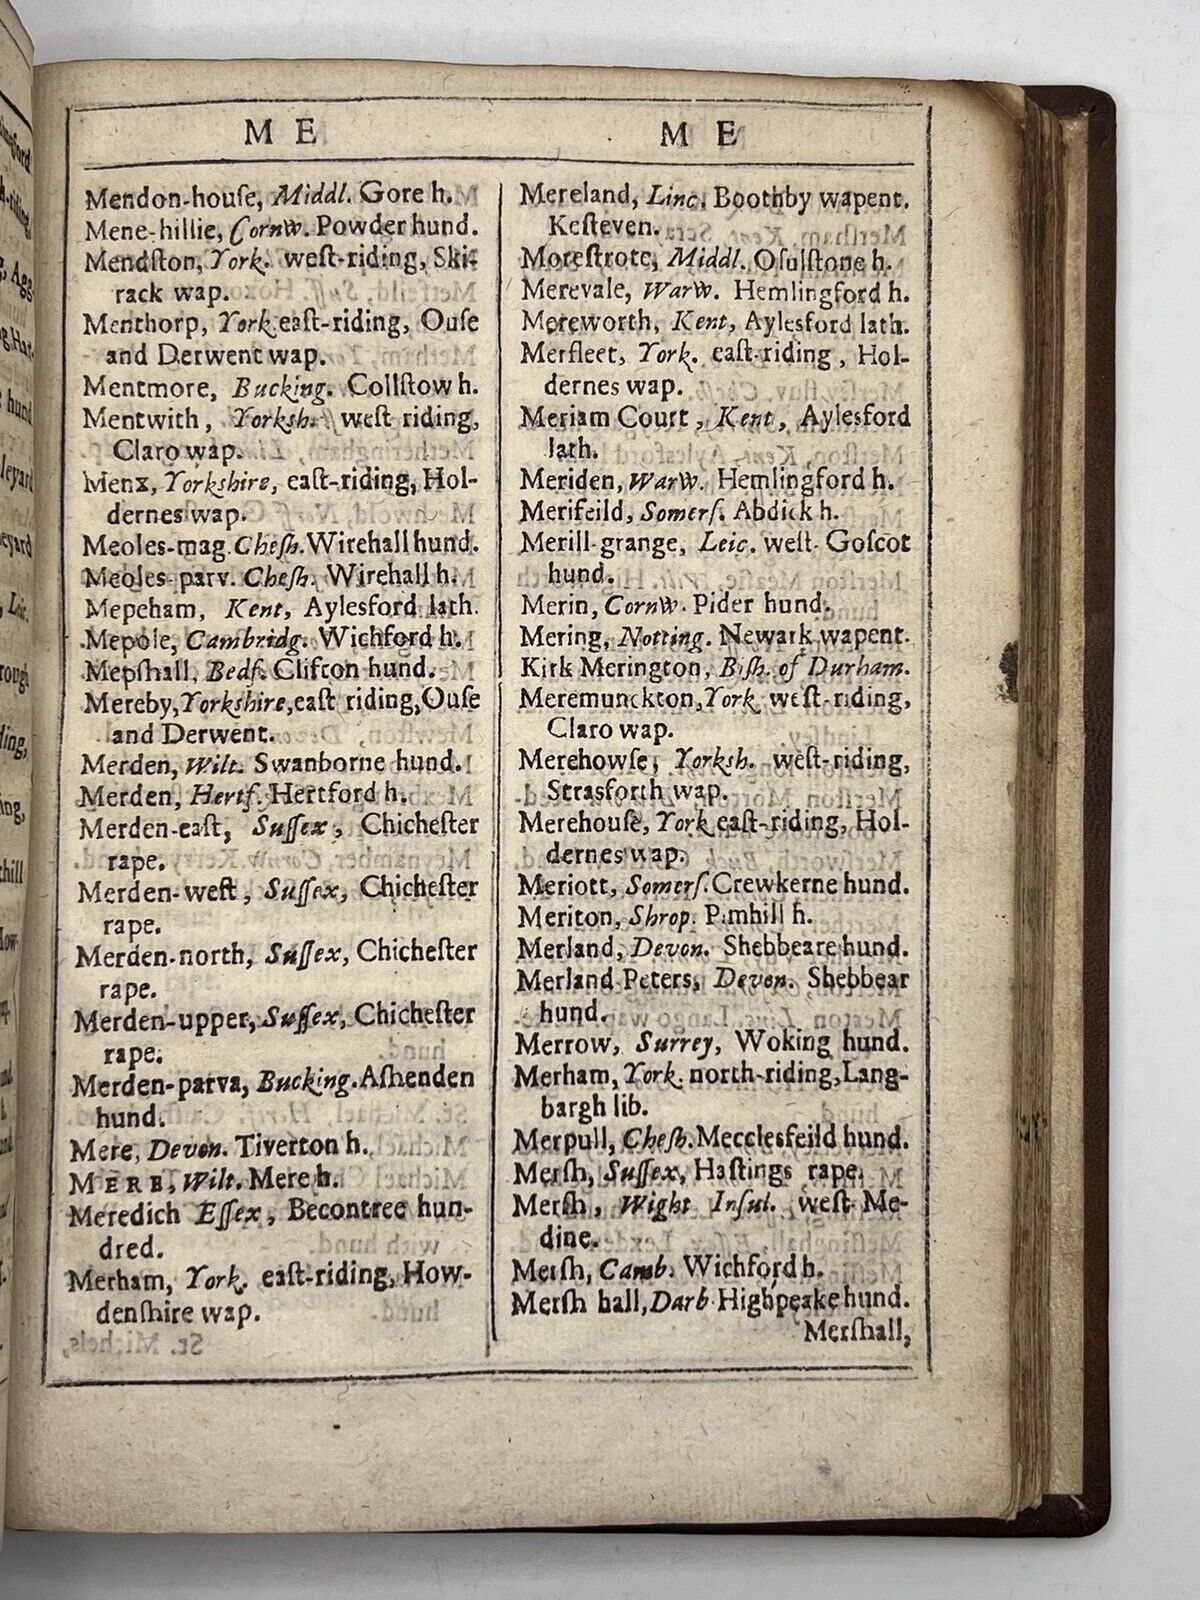 M E
Mendon-houſe, Middl. Gore h.
Mene-hillie, CornW. Powder hund.
Mendſton, York. weſt-riding, Ski-
rack wap.
Menthorp, York eaſt-riding, Ouſe
and Derwent wap.
Mentmore, Bucking. Collſtow h.
Mentwith, Yorksh. weſt riding,
Claro wap.
Menx, Yorkshire, eaſt-riding, Hol-
dernes wap.
Meoles-mag Cheſh. Wirehall hund.
Meoles-parv. Cheſh. Wirehall h.
Mepeham, Kent, Aylesford lath.
Mepole, Cambridg. Wichford h.
Mepſhall, Bedf. Clifton hund.
Mereby, Yorkshire, eaſt riding, Ouſe
and Derwent.
Merden, Wilt. Swanborne hund.
Merden, Hertf. Hertford h.
Merden-eaſt, Suſſex, Chicheſter
rape.
Merden-weſt, Suſſex, Chicheſter
rape.
Merden-north, Suſſex, Chicheſter
rape.
Merden-upper, Suſſex, Chicheſter
rape.
Merden-parva, Bucking. Aſhenden
hund.
Mere, Devon. Tiverton h.
MERE, Wilt. Mere h.
Meredich Eſſex, Becontree hun-
dred.
Merham, York. eaſt-riding, How-
denſhire wap.
M E
Mereland, Linc. Boothby wapent.
Keſteven.
Moreſtrote, Middl. Oſulſtone h.
Merevale, WarW. Hemlingford h.
Mereworth, Kent, Aylesford lath.
Merfleet, York. eaſt-riding, Hol-
dernes wap.
Meriam Court, Kent, Aylesford
lath.
Meriden, WarW. Hemlingford h.
Merifeild, Somerſ. Abdick h.
Merill-grange, Leic. weſt-Goſcot
hund.
Merin, CornW. Pider hund.
Mering, Notting. Newark wapent.
Kirk Merington, Biſh. of Durham.
Meremunckton, York weſt-riding,
Claro wap.
Merehowſe, Yorksh. weſt-riding,
Strasforth wap.
Merehouſe, York eaſt-riding, Hol-
dernes wap.
Meriott, Somerſ. Crewkerne hund.
Meriton, Shrop. Pimhill h.
Merland, Devon. Shebbeare hund.
Merland Peters, Devon. Shebbear
hund.
Merrow, Surrey, Woking hund.
Merham, York. north-riding, Lang-
bargh lib.
Merpull, Cheſh. Mecclesfeild hund.
Merſh, Suſſex, Haſtings rape.
Merſh, Wight Inſul. weſt-Me-
dine.
Merſh, Camb. Wichford h.
Merſh hall, Darb Highpeake hund.
Merſhall,